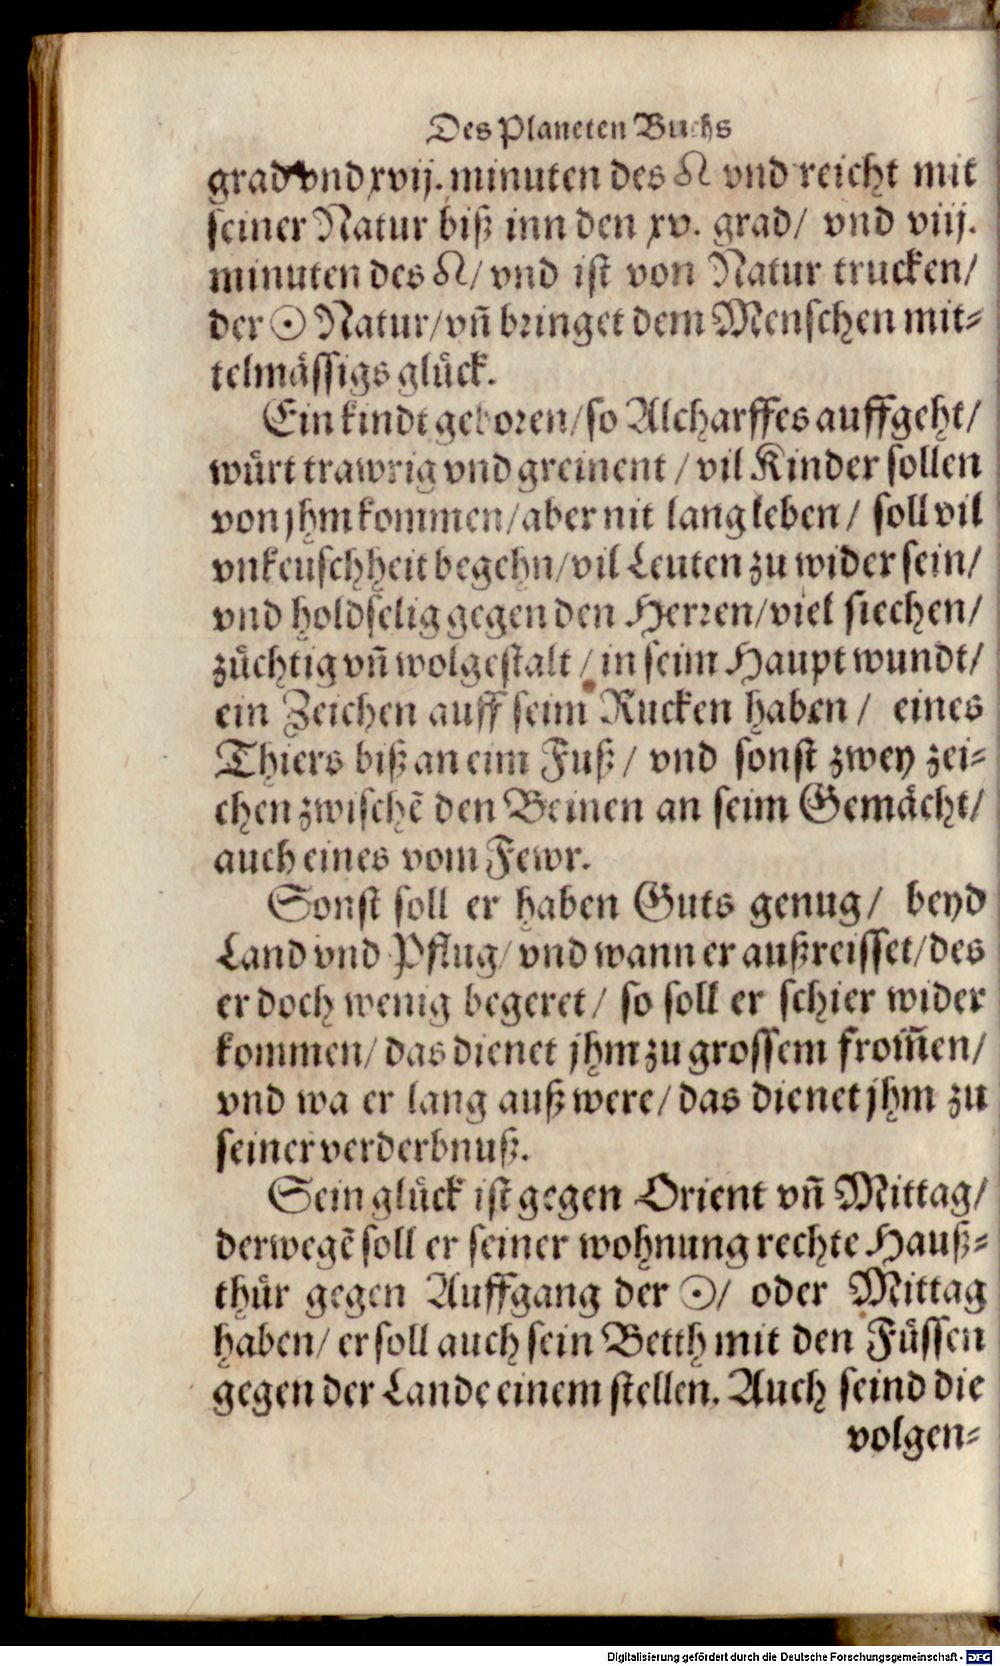 Des Planeten Buchs
grad vnd xvij. minuten des ♌ vnd reicht mit
seiner Natur biß inn den xv. grad/ vnd viij.
minuten des ♌/ vnd ist von Natur trucken/
der ☉ Natur/ vñ bringet dem Menschen mit⸗
telmässigs glück.
Ein kindt geboren/ so Alcharffes auffgeht/
würt trawrig vnd greinent / vil Kinder sollen
von jhm kommen/ aber nit lang leben/ soll vil
vnkeuschheit begehn/ vil Leuten zu wider sein/
vnd holdselig gegen den Herren/ viel siechen/
züchtig vñ wolgestalt / in seim Haupt wundt/
ein Zeichen auff seim Rucken haben / eines
Thiers biß an eim Fuß / vnd sonst zwey zei⸗
chen zwischẽ den Beinen an seim Gemächt/
auch eines vom Fewr.
Sonst soll er haben Guts genug/ beyd
Land vnd Pflug/ vnd wann er außreisset/ des
er doch wenig begeret/ so soll er schier wider
kommen/ das dienet jhm zu grossem from̃en/
vnd wa er lang auß were/ das dienet jhm zu
seiner verderbnuß.
Sein glück ist gegen Orient vñ Mittag/
derwegẽ soll er seiner wohnung rechte Hauß⸗
thür gegen Auffgang der ☉/ oder Mittag
haben/ er soll auch sein Betth mit den Füssen
gegen der Lande einem stellen. Auch seind die
volgen⸗
Digitalisierung gefördert durch die Deutsche Forschungsgemeinschaft - DFG